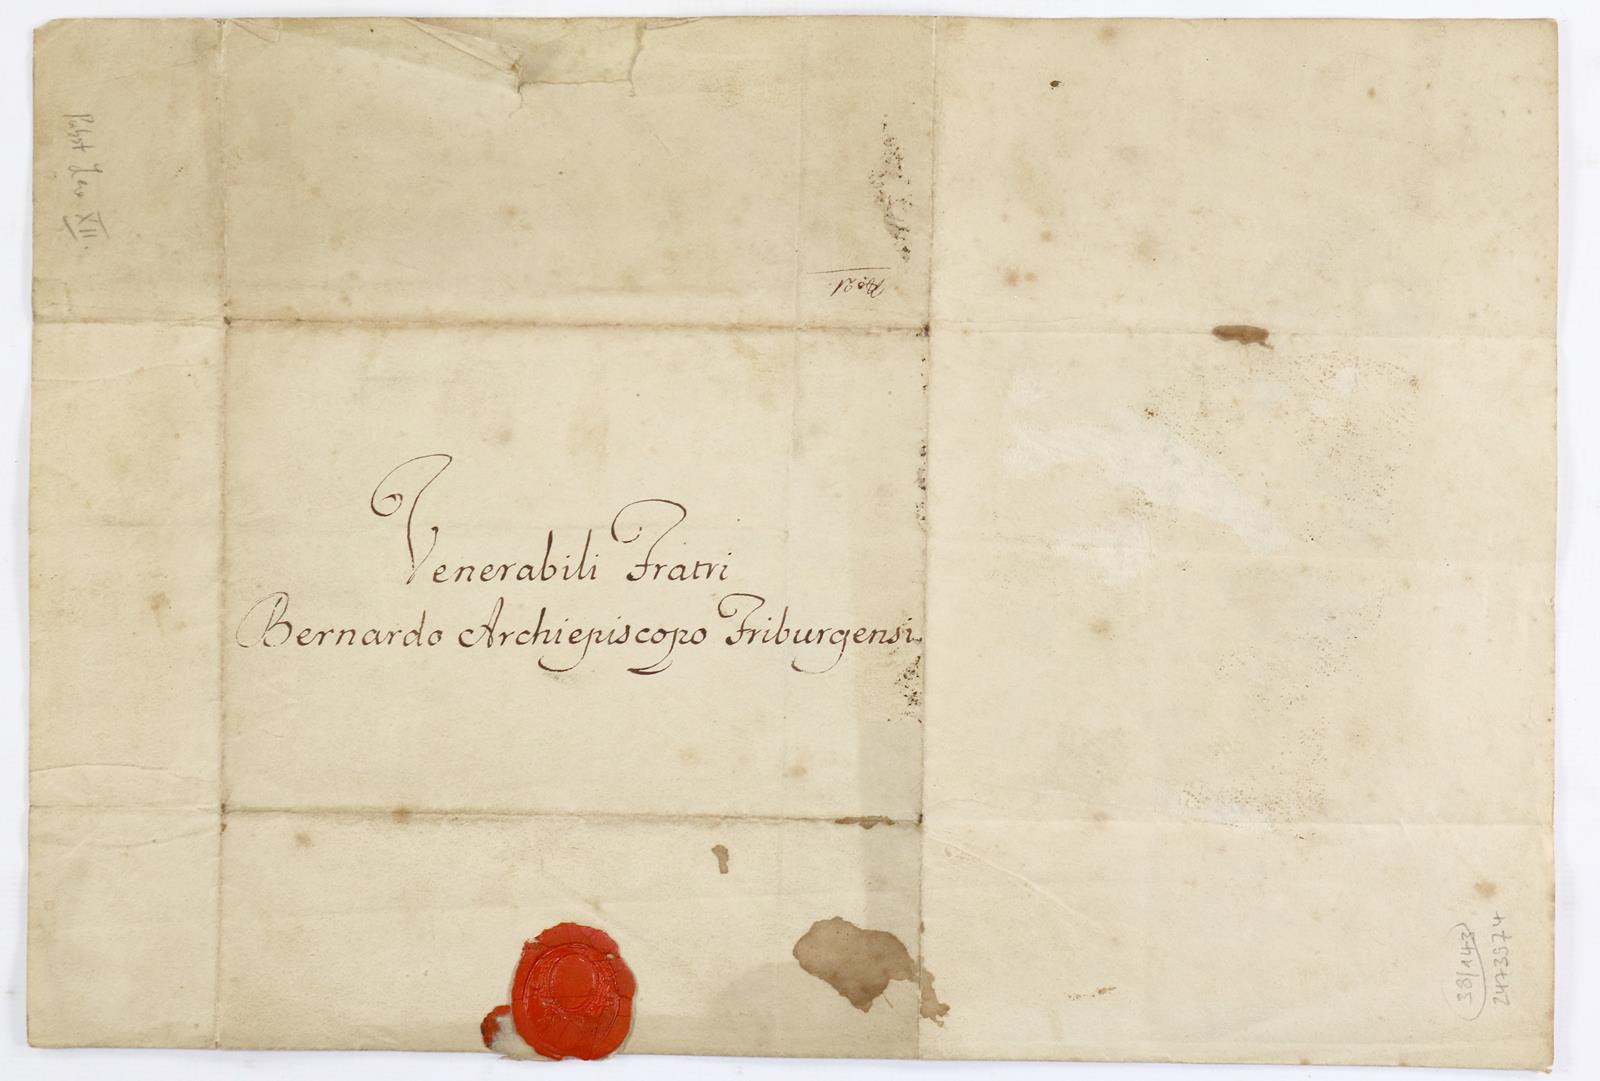 Pabst Leo XII.
Venerabili Fratri
Bernardo Archiepiscopo Friburgensi
38/143
2473974